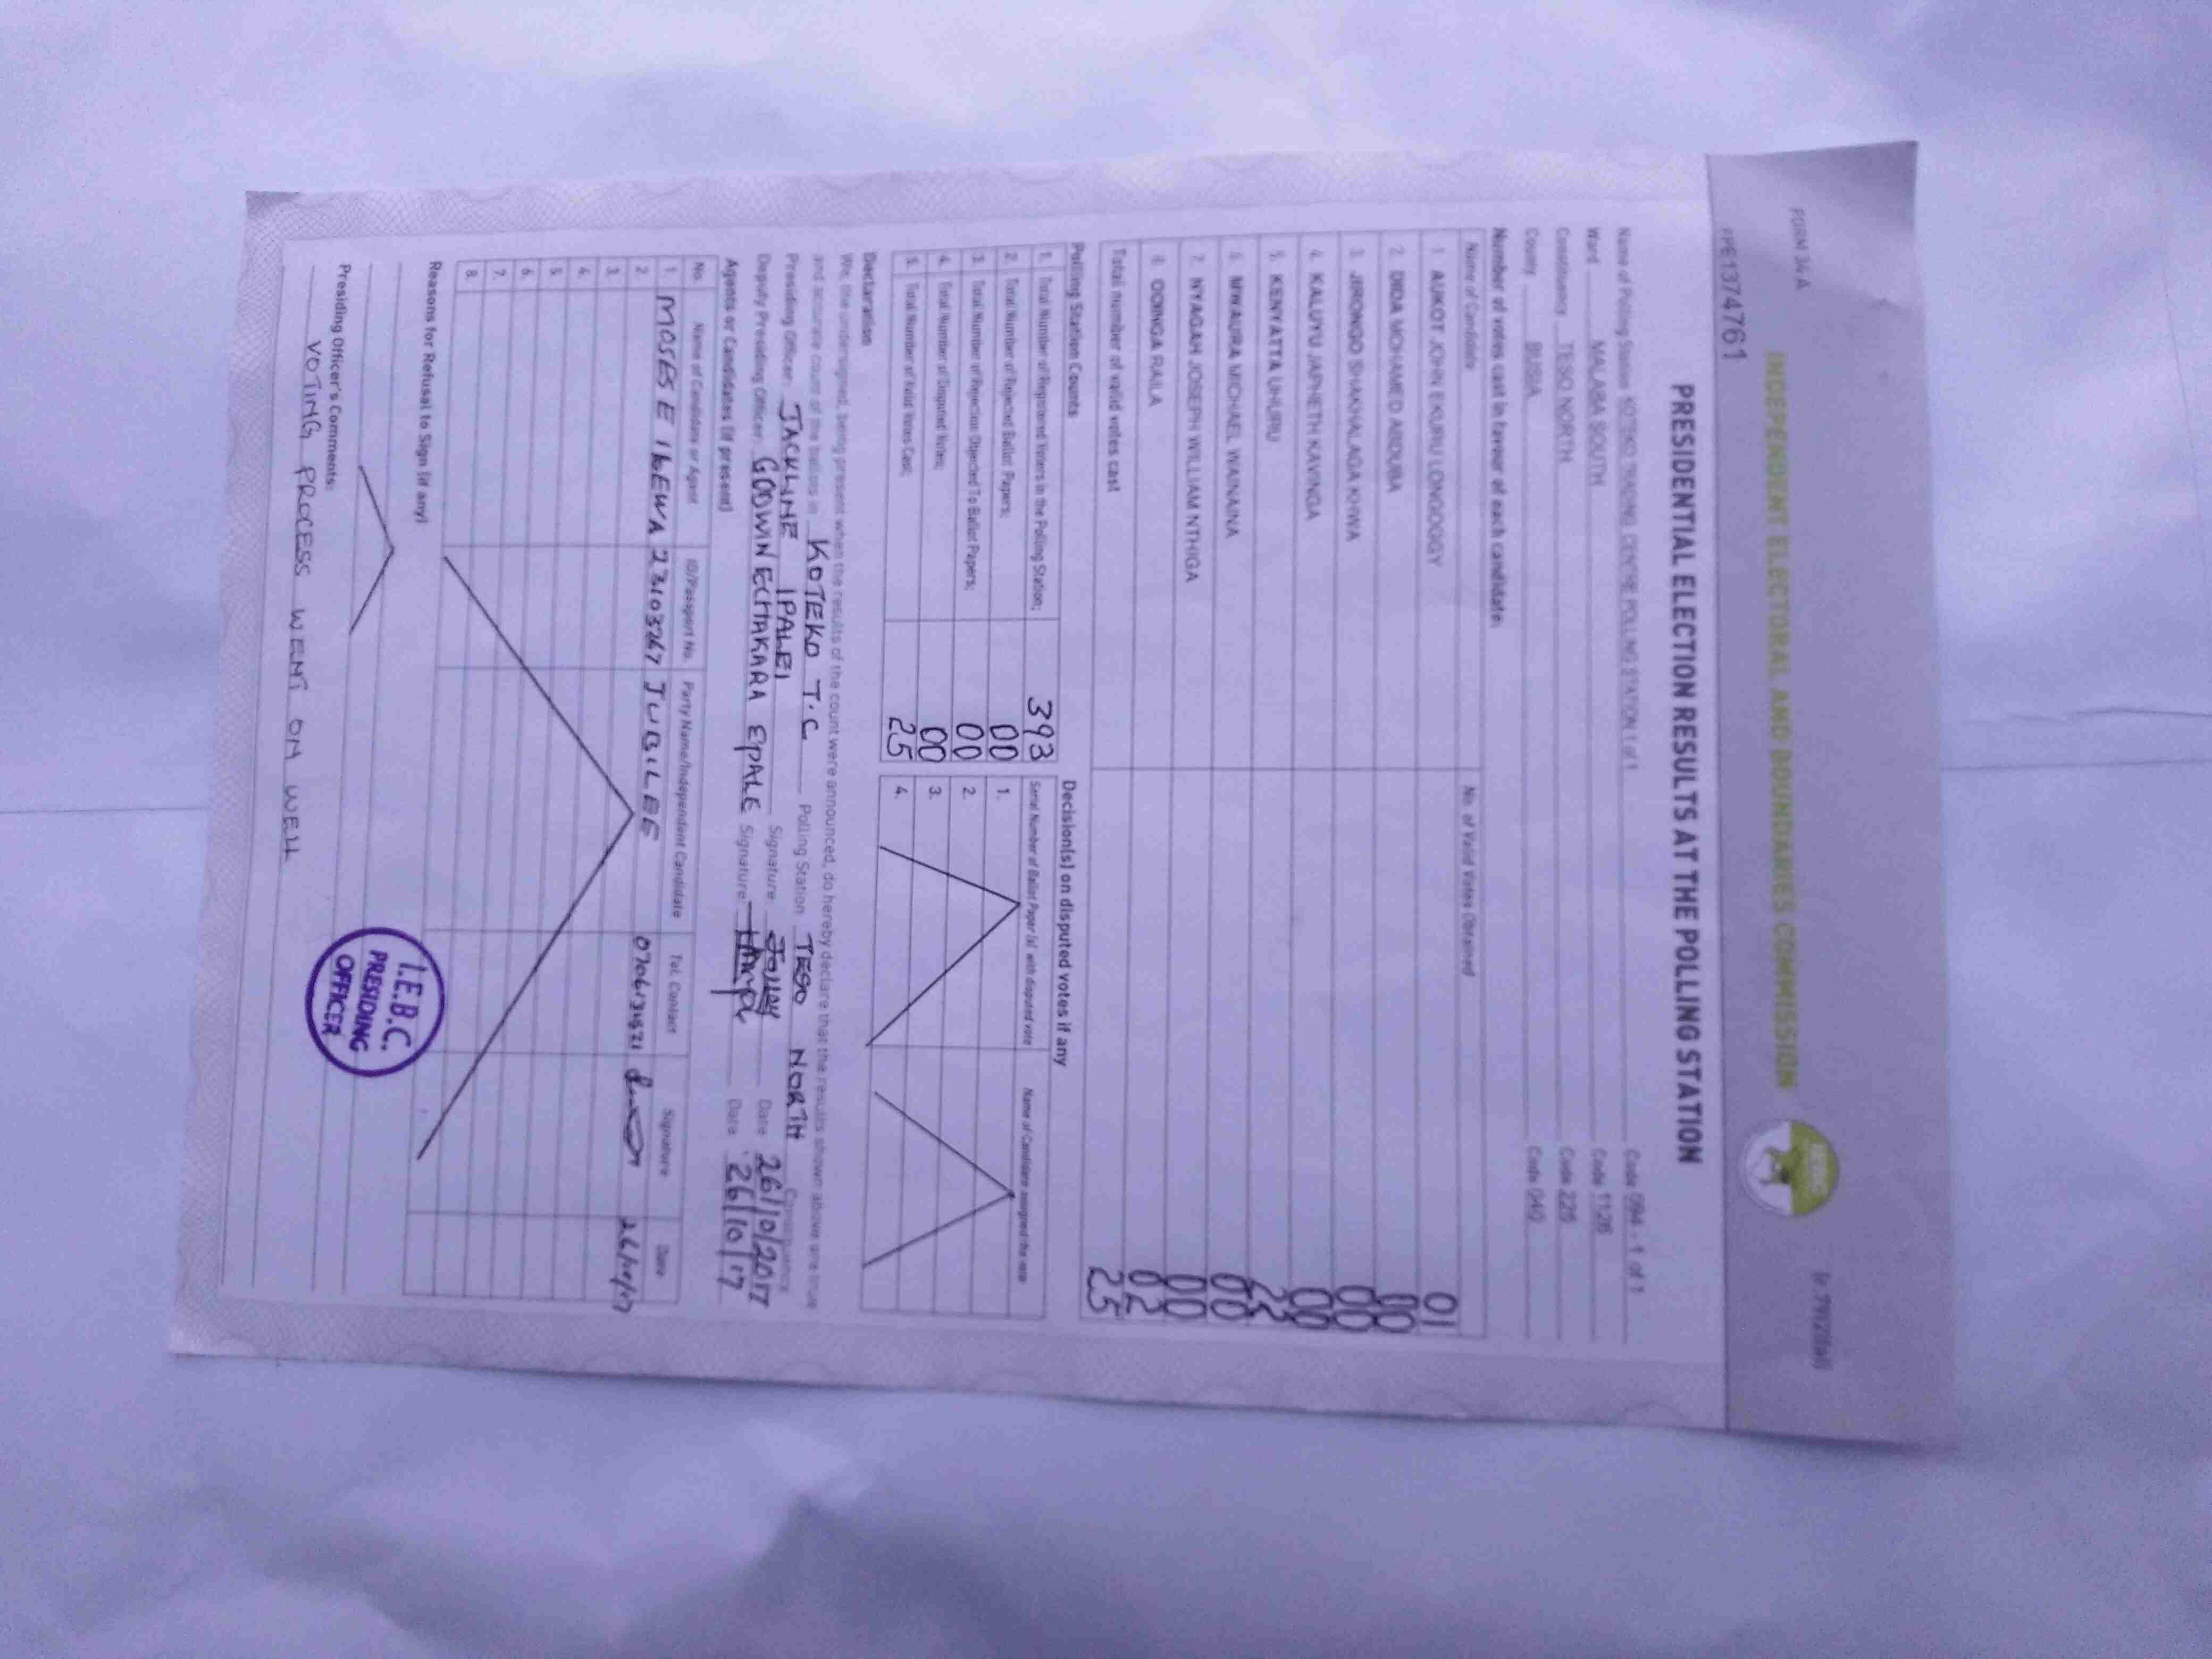 FORM 34 A
INDEPENDENT ELECTORAL AND BOUNDARIES COMMISSION
PPE1374761
PRESIDENTIAL ELECTION RESULTS AT THE POLLING STATION
Name of Polling Station KOTEKO TRADING CENTRE POLLING STATION 1 of 1 Code 094 - 1 of 1
Ward MALABA SOUTH Code 1126
Constituency TESO NORTH Code 226
County BUSIA Code 040
Number of votes cast in favour of each candidate:
Name of Candidate No. of Valid Votes Obtained
1. AUKOT JOHN EKURU LONGOGGY 01
2. DIDA MOHAMED ABDUBA 00
3. JIRONGO SHAKHALAGA KHWA 00
4. KALUYU JAPHETH KAVINGA 00
5. KENYATTA UHURU 22
6. MWAURA MICHAEL WAINAINA 00
7. NYAGAH JOSEPH WILLIAM NTHIGA 00
8. ODINGA RAILA 02
Total number of valid votes cast 25
Polling Station Counts
1. Total Number of Registered Voters in the Polling Station; 393
2. Total Number of Rejected Ballot Papers; 00
3. Total Number of Rejection Objected To Ballot Papers; 00
4. Total Number of Disputed Votes; 00
5. Total Number of Valid Votes Cast; 25
Decision(s) on disputed votes if any
Serial Number of Ballot Paper (s) with disputed vote Name of Candidate assigned the vote
1.
2.
3.
4.
Declaration
We, the undersigned, being present when the results of the count were announced, do hereby declare that the results shown above are true
and accurate count of the ballots in KOTEKO T.C Polling Station TESO NORTH Constituency
Presiding Officer: JACKLINE IPALEI Signature Date 26/10/2017
Deputy Presiding Officer: GODWIN ECHAKARA EPALE Signature Date 26/10/17
Agents or Candidates (if present)
No. Name of Candidate or Agent ID/Passport No. Party Name/Independent Candidate Tel. Contact Signature Date
1. MOSES E IKEWA 23103267 JUBILEE 26/10/17
2.
3.
4.
5.
6.
7.
8.
Reasons for Refusal to Sign (if any)
Presiding Officer's Comments:
VOTING PROCESS WENT ON WELL
I.E.B.C.
PRESIDING
OFFICER